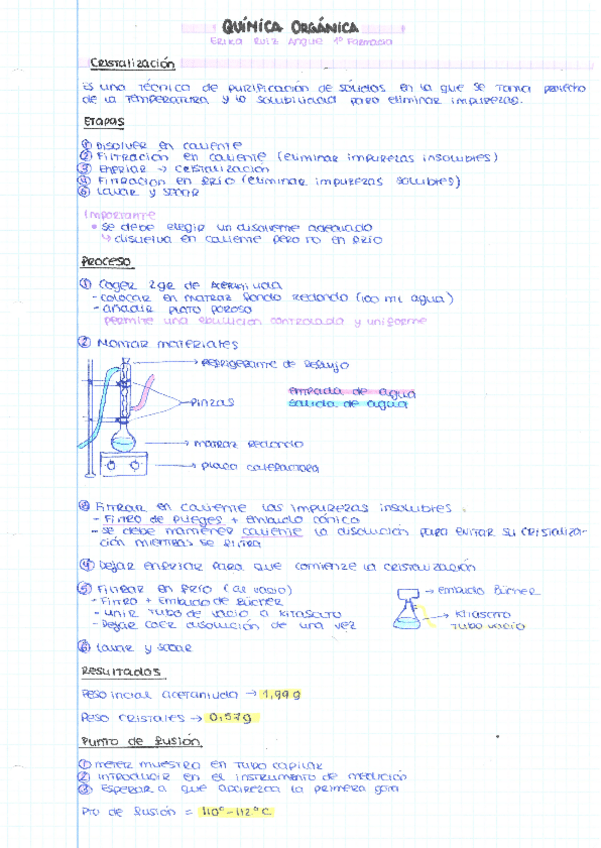 QUÍMICA ORGÁNICA
Erika Ruiz Angue 1º Farmacia
CRISTALIZACIÓN
Es una técnica de purificación de sólidos en la que se toma provecho
de la temperatura y la solubilidad para eliminar impurezas.
ETAPAS
① Disolver en caliente
② Filtración en caliente (eliminar impurezas insolubles)
③ Enfriar → cristalización
④ Filtración en frío (eliminar impurezas solubles)
⑤ Lavar y secar
Importante
• Se debe elegir un disolvente adecuado
↳ disuelva en caliente pero no en frío
PROCESO
① Coger 2gr de Acetanilida
- colocar en matraz fondo redondo (100 ml agua)
- añadir plato poroso
permite una ebullición controlada y uniforme
② Montar materiales
→ Refrigerante de reflujo
entrada de agua
Pinzas
salida de agua
→ matraz redondo
→ placa calefactora
③ Filtrar en caliente las impurezas insolubles
- Filtro de pliegues + embudo cónico
- se debe mantener caliente la disolución para evitar su cristaliza-
ción mientras se filtra
④ Dejar enfriar para que comience la cristalización
⑤ Filtrar en frío (al vacío)
- Filtro + Embudo de Büchner
- unir tubo de vacío a kitasato
- Dejar caer disolución de una vez
→ embudo Büchner
→ kitasato
tubo vacío
⑥ Lavar y secar
RESULTADOS
Peso inicial acetanilida → 1,99 g
Peso cristales → 0,57 g
PUNTO de fusión
① meter muestra en tubo capilar
② introducir en el instrumento de medición
③ Esperar a que aparezca la primera gota
Pto de fusión = 110º - 112º C